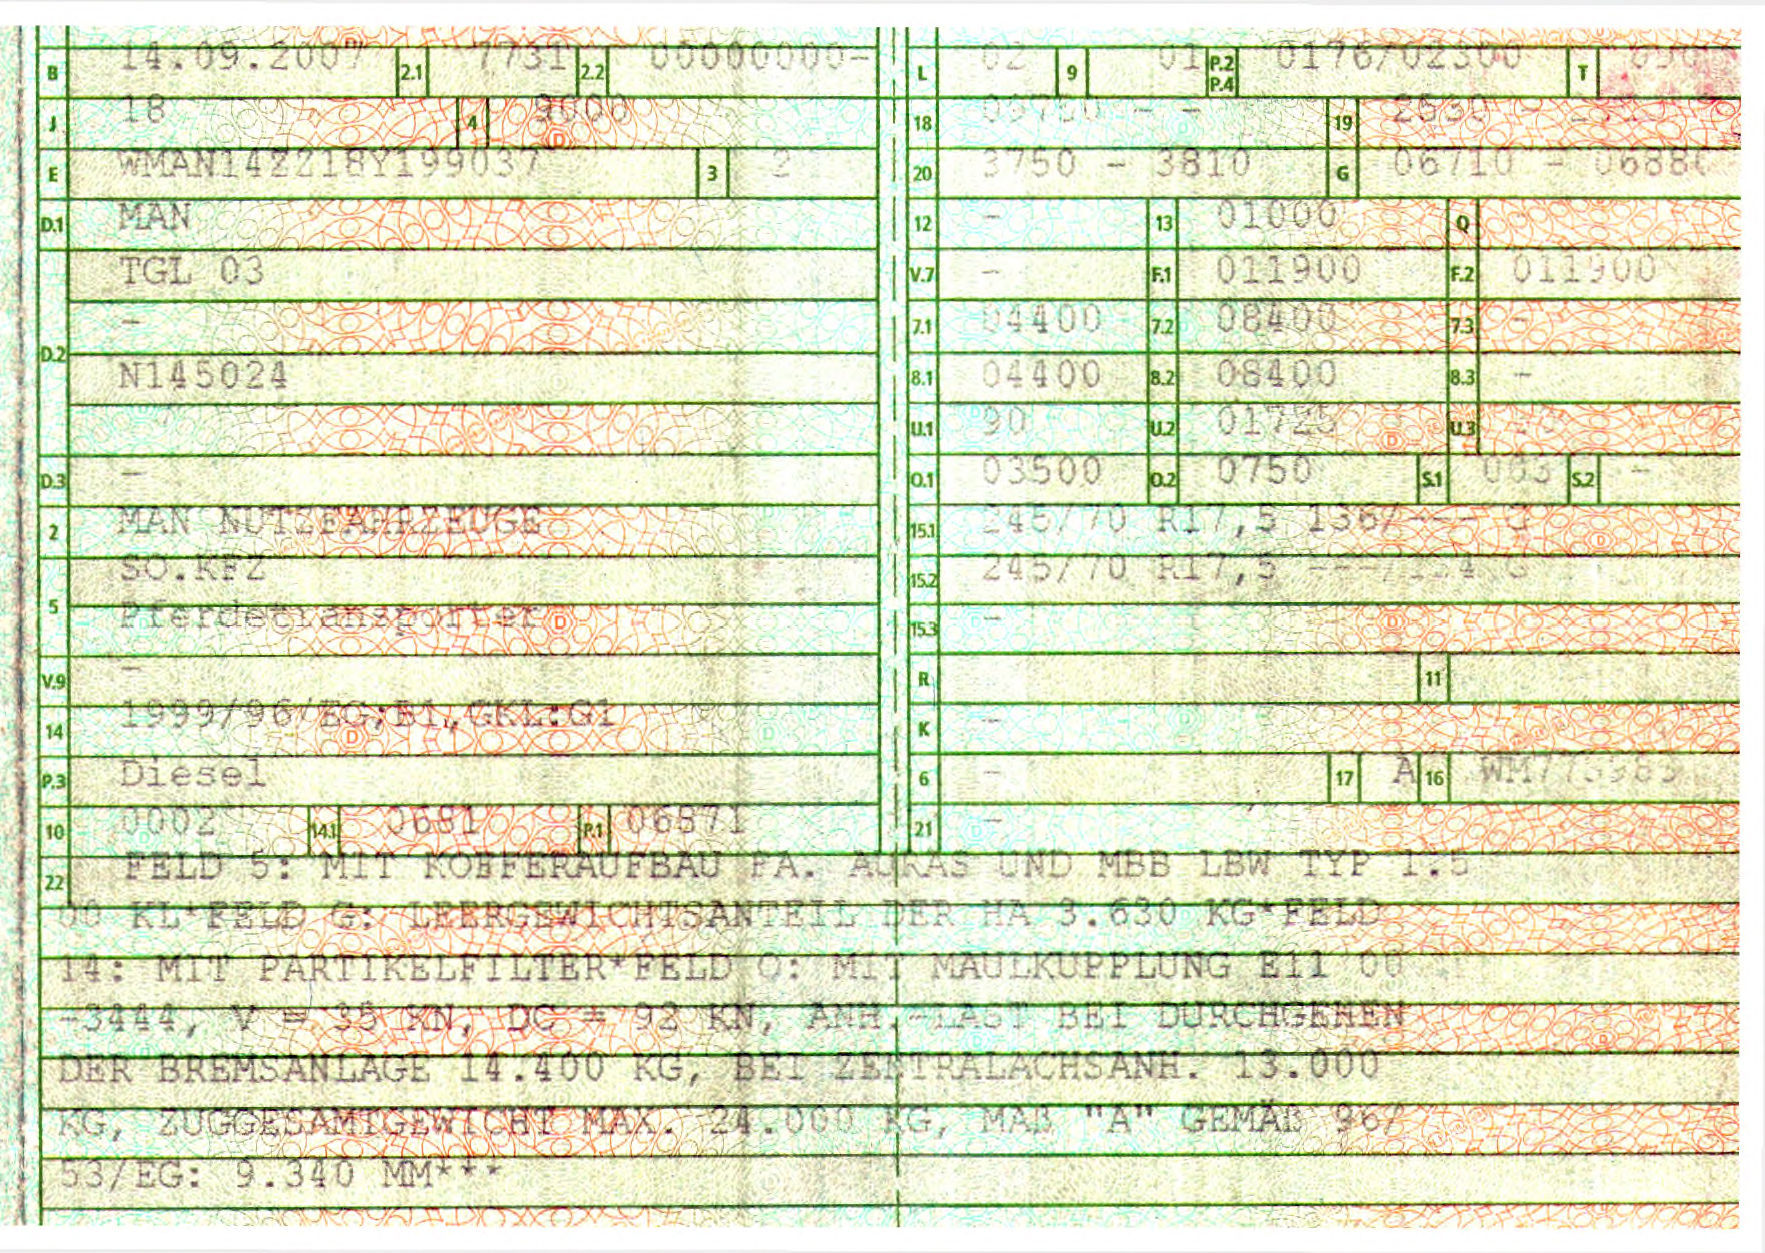 B 14.09.2007 2.1 7731 2.2 00000000-
J 18 4 9000
E WMAN14ZZ18Y199037 3 2
D.1 MAN
TGL 03
-
D.2
N145024
D.3 -
2 MAN NUTZFAHRZEUGE
SO.KFZ
5 Pferdetransporter
V.9 -
14 1999/96/EG;B1,GKL:G1
P.3 Diesel
10 0002 14.1 0681 P.1 06871
L 02 9 01 P.2 P.4 0176/02300 T 090
18 - - 19 2550 -
20 3750 - 3810 G 06710 - 06880
12 - 13 01000 Q -
V.7 - F.1 011900 F.2 011900
7.1 04400 7.2 08400 7.3 -
8.1 04400 8.2 08400 8.3 -
U.1 90 U.2 01725 U.3
O.1 03500 O.2 0750 S.1 003 S.2 -
15.1 245/70 R17,5 136/--- G
15.2 245/70 R17,5 ---/134 G
15.3 -
R 11
K -
6 - 17 A 16
21 -
22 FELD 5: MIT KOFFERAUFBAU FA. AUKAS UND MBB LBW TYP 1.5
00 KL*FELD G: LEERGEWICHTSANTEIL DER HA 3.630 KG*FELD
14: MIT PARTIKELFILTER*FELD O: MIT MAULKUPPLUNG E11 00
-3444, V = 35 KN, DC = 92 KN, ANH.-LAST BEI DURCHGEHEN
DER BREMSANLAGE 14.400 KG, BEI ZENTRALACHSANH. 13.000
KG, ZUGGESAMTGEWICHT MAX. 24.000 KG, MAß "A" GEMÄß 96/
53/EG: 9.340 MM***